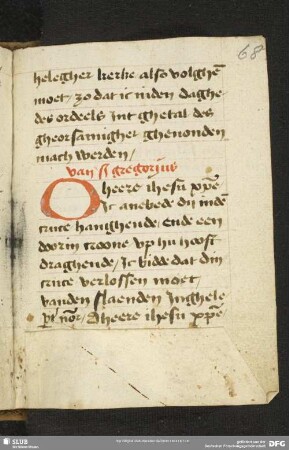 68
helegher kerke also volghē
moet / zo dat ic inden daghe
des ordeels Int ghetal des
gheorsamighet ghevonden
mach werden /
van sĩ gregorius
O heere ihesu xp̄e
Ic anebede dij indē
cruce hanghende / Ende een
doorin croone vp hu hooft
draghende / Ic bidde dat din
cruce verlossen moet /
vanden slaenden Inghele
pr̄ nr̄ / O heere ihesu xp̄e /
SLUB
DFG